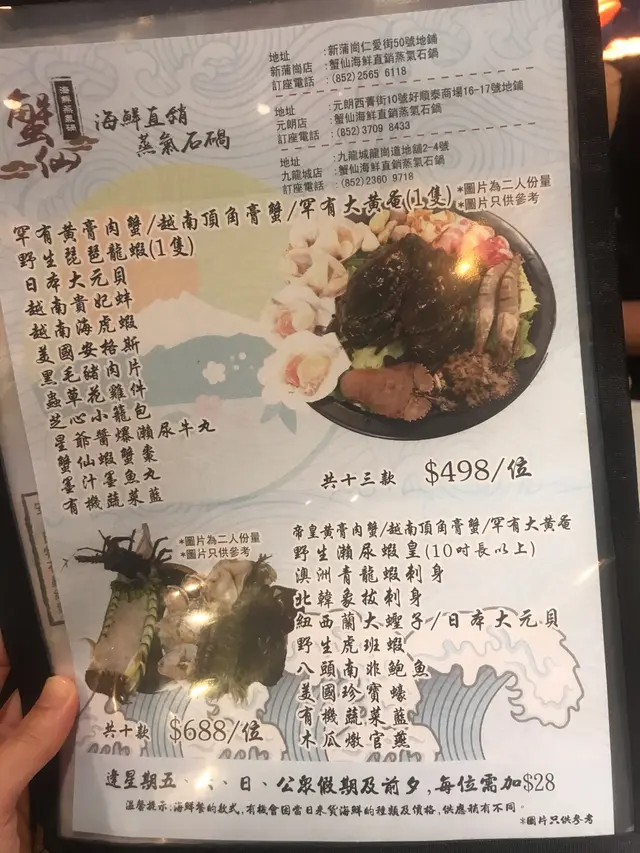 蟹仙
海鮮蒸氣鍋
海鮮直銷
蒸氣石鍋
地址 ：新蒲崗仁愛街50號地鋪
新蒲崗店 ：蟹仙海鮮直銷蒸氣石鍋
訂座電話 ：(852)2565 6118
地址 ：元朗西菁街10號好順泰商場16-17號地鋪
元朗店 ：蟹仙海鮮直銷蒸氣石鍋
訂座電話 ：(852)3709 8433
地址 ：九龍城龍崗道地舖2-4號
九龍城店 ：蟹仙海鮮直銷蒸氣石鍋
訂座電話 ：(852)2360 9718
*圖片為二人份量
*圖片只供參考
罕有黃膏肉蟹/越南頂角膏蟹/罕有大黃奄(1隻)
野生琵琶龍蝦(1隻)
日本大元貝
越南貴妃蚌
越南海虎蝦
美國安格斯
黑毛豬肉片
蟲草花雞件
芝心小籠包
星爺醬爆瀨尿牛丸
蟹仙蝦蟹棗
墨汁墨魚丸
有機蔬菜籃
共十三款 $498/位
*圖片為二人份量
*圖片只供參考
帝皇黃膏肉蟹/越南頂角膏蟹/罕有大黃奄
野生瀨尿蝦皇(10吋長以上)
澳洲青龍蝦刺身
北韓象拔刺身
紐西蘭大蟶子/日本大元貝
野生虎班蝦
八頭南非鮑魚
美國珍寶蠔
有機蔬菜籃
木瓜燉官燕
共十款 $688/位
逢星期五、六、日、公眾假期及前夕,每位需加$28
溫馨提示:海鮮餐的款式,有機會因當日來貨海鮮的種類及價格,供應稍有不同。
*圖片只供參考